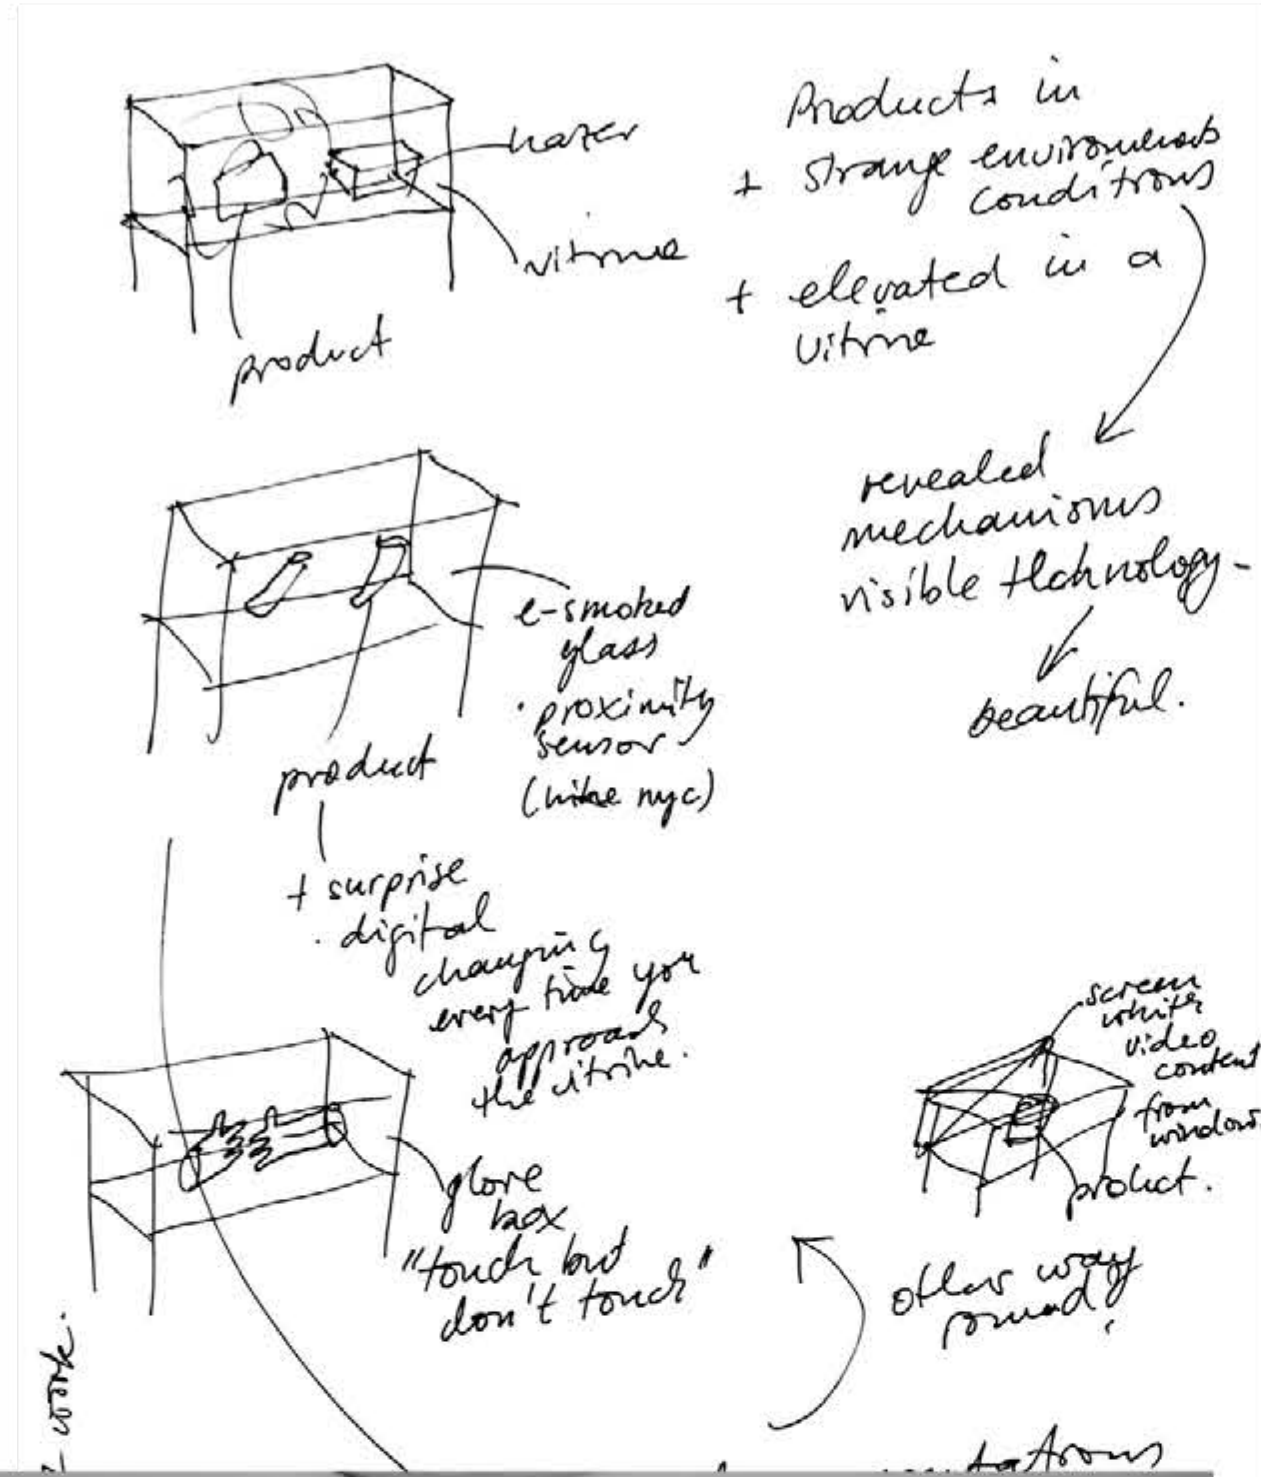 hazer
vitrine
product
Products in
+ strange environments
conditions
+ elevated in a
vitrine
revealed
mechanisms
visible technology -
beautiful.
e-smoked
glass
· proximity
sensor
(nike nyc)
product
+ surprise
· digital
changing
every time you
approach
the vitrine.
glove
box
"touch but
don't touch"
screen
white
video
content
from
window.
product.
other way
round?
work.